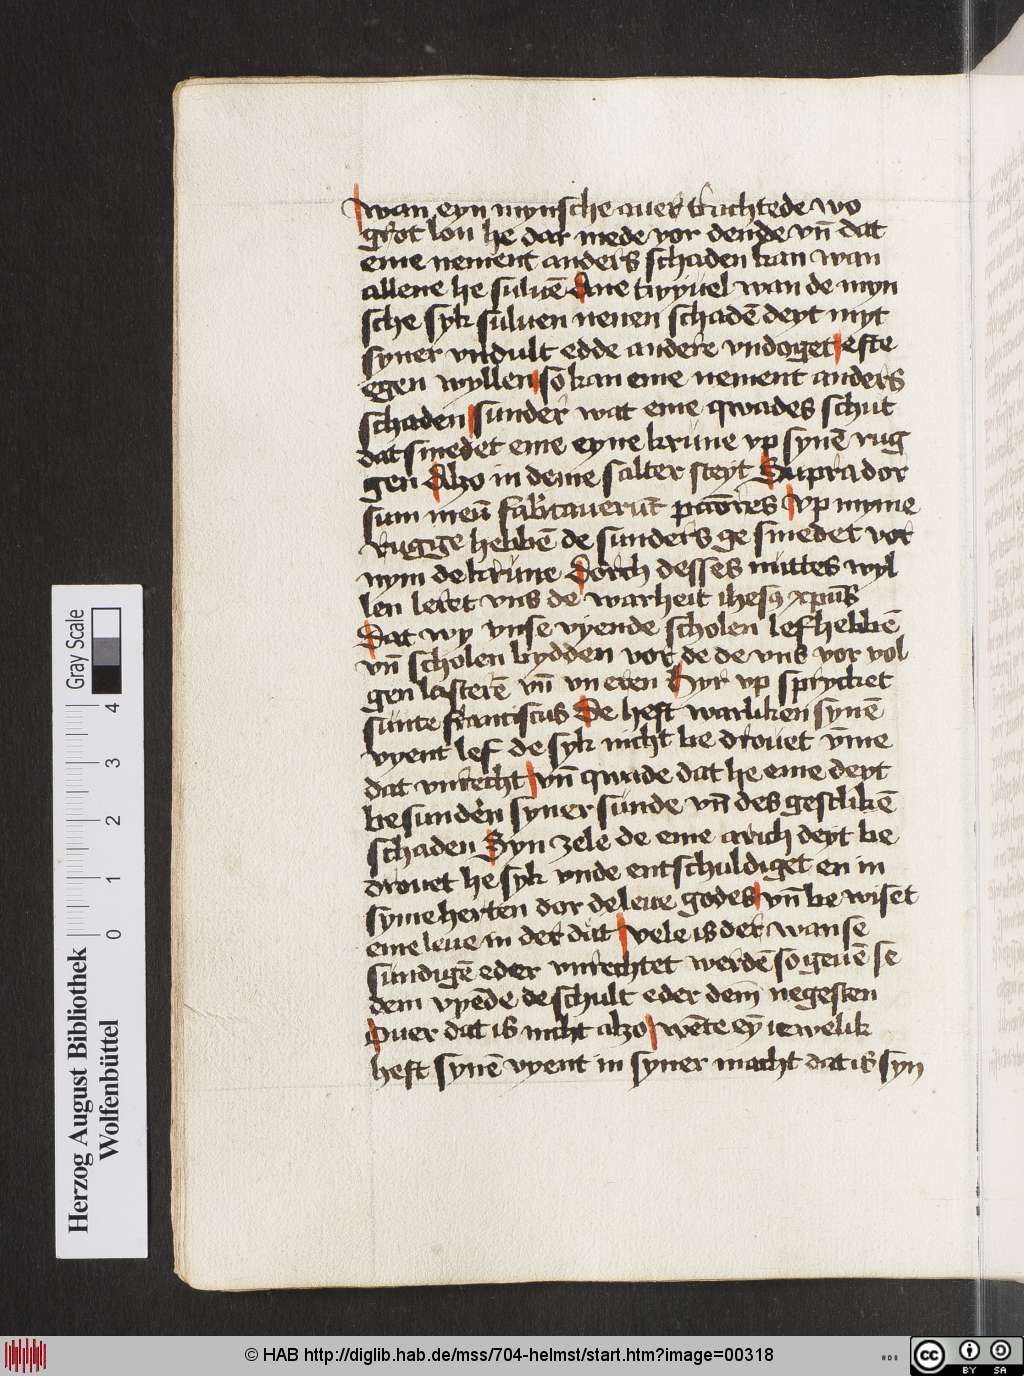 wan eyn mynsche auer trachtede wo
grot lon he dar mede vor dende vn̄ dat
eme nement anders schaden kan wan
allene he suluē Ane twyuel wan de myn
sche syk suluen nenen schadē deyt myt
syner vndult edde andere vndoget efte
egen wyllen so kan eme nement anders
schaden sunder wat eme qwades schut
dat smedet eme eyne krune vp synē rug
gen Alzo in deme salter steyt Supra dor
sum meū fabricauerūt pctōres vp myme
rugge hebbē de sunders ge smedet vor
nym de krune Dorch desses nuttes wyl
len leret vns de warheit ihesꝯ xpūs
Dat wy vnse vyende scholen lef hebbē
vn̄ scholen bydden vor de de vns vor vol
gen lasterē vn̄ vn eren Hyr vp sprycket
sunte franciscus De heft warliken synē
vyent lef de syk nicht be drouet vm̄e
dat vnrecht vn̄ qwade dat he eme deyt
besundern syner sunde vn̄ des gestlikē
schaden Syn zele de eme arich deyt be
drouet he syk vnde entschuldiget en in
syme herten dor de leue godes vn̄ be wiset
eme leue in der dat vele is der wan se
sundigē eder vnrechtet werdē so geuē se
dem vyēde de schult eder dem̄ negesten
Ouer dat is nicht alzo wēte eȳ iewelik
heft synē vyent in syner macht dat is syn
Herzog August Bibliothek
Wolfenbüttel
0 1 2 3 4
Gray Scale
© HAB http://diglib.hab.de/mss/704-helmst/start.htm?image=00318
HAB
cc BY SA